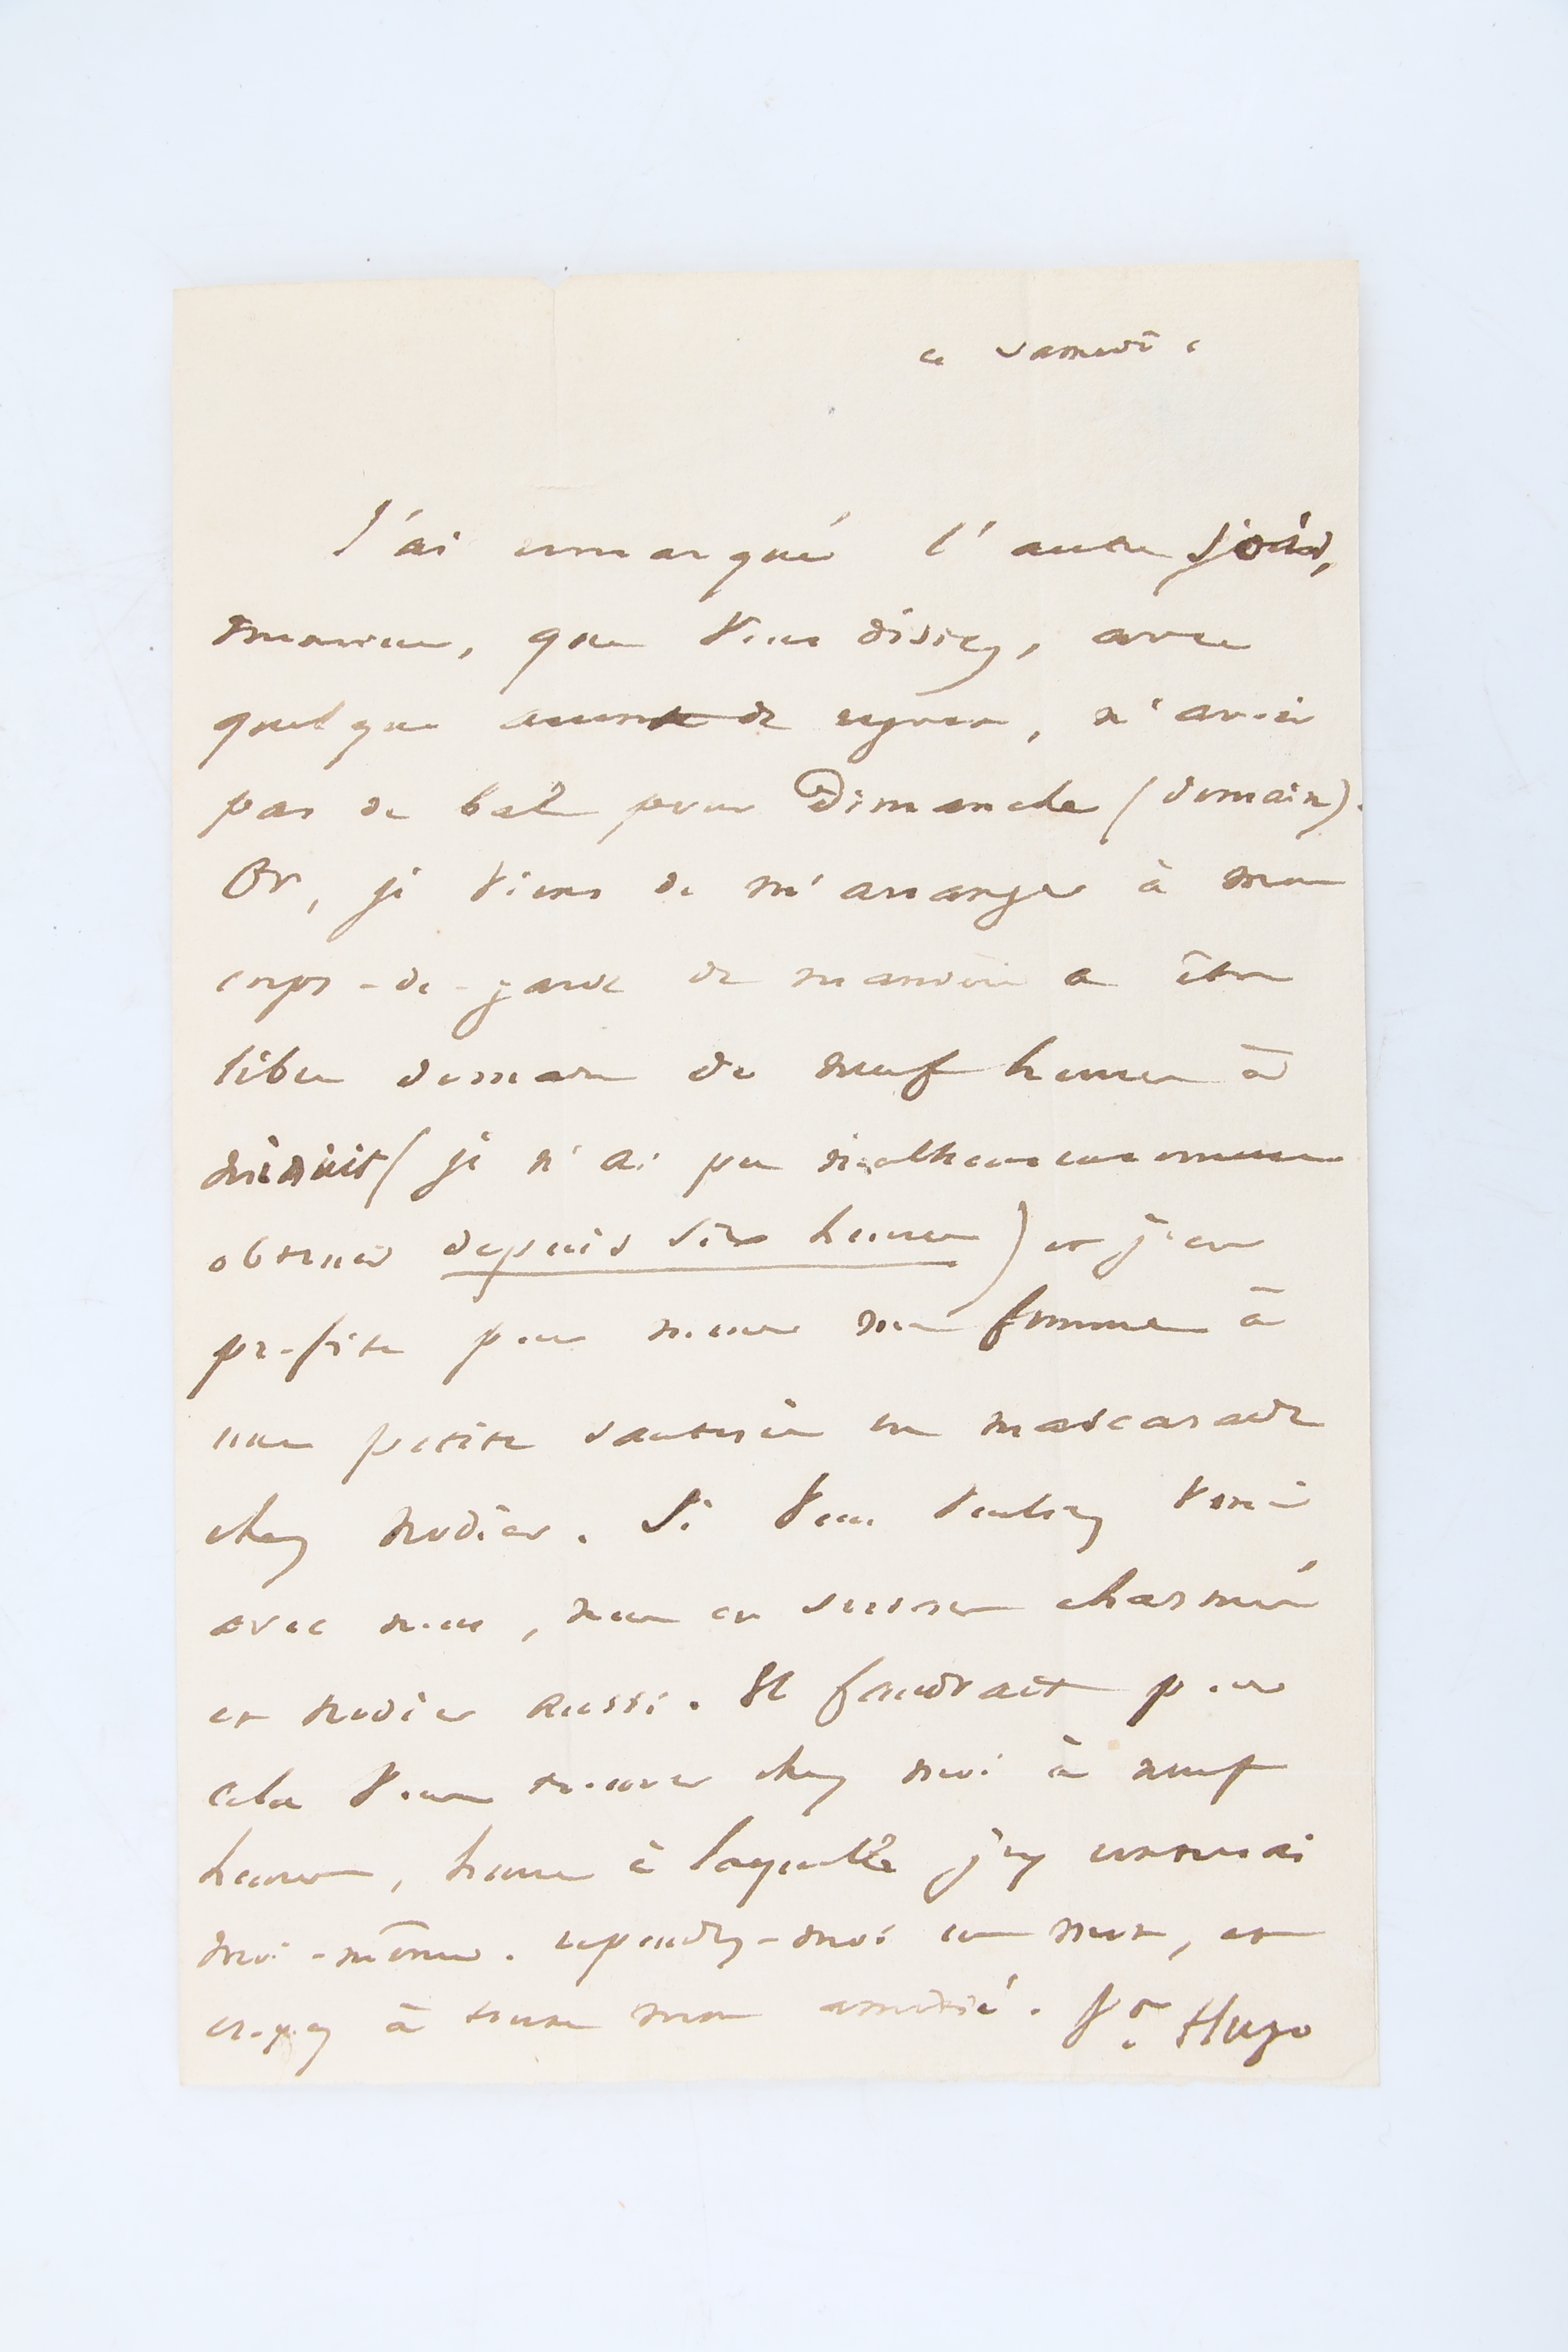 ce samedi.
J'ai remarqué l'autre soir,
monsieur, que vous disiez, avec
quelque accent de regret, n'avoir
pas de bal pour Dimanche (demain).
Or, je viens de m'arranger à mon
corps-de-garde de manière à être
libre demain de neuf heures à
minuit (je n'ai pu malheureusement
obtenir depuis six heures) et j'en
profite pour mener ma femme à
une petite sauterie en mascarade
chez Nodier. Si vous voulez venir
avec nous, nous en serons charmés
et Nodier aussi. Il faudrait pour
cela vous trouver chez moi à neuf
heures, heure à laquelle j'y rentrerai
moi-même. répondez-moi un mot, et
croyez à toute mon amitié. Vor Hugo